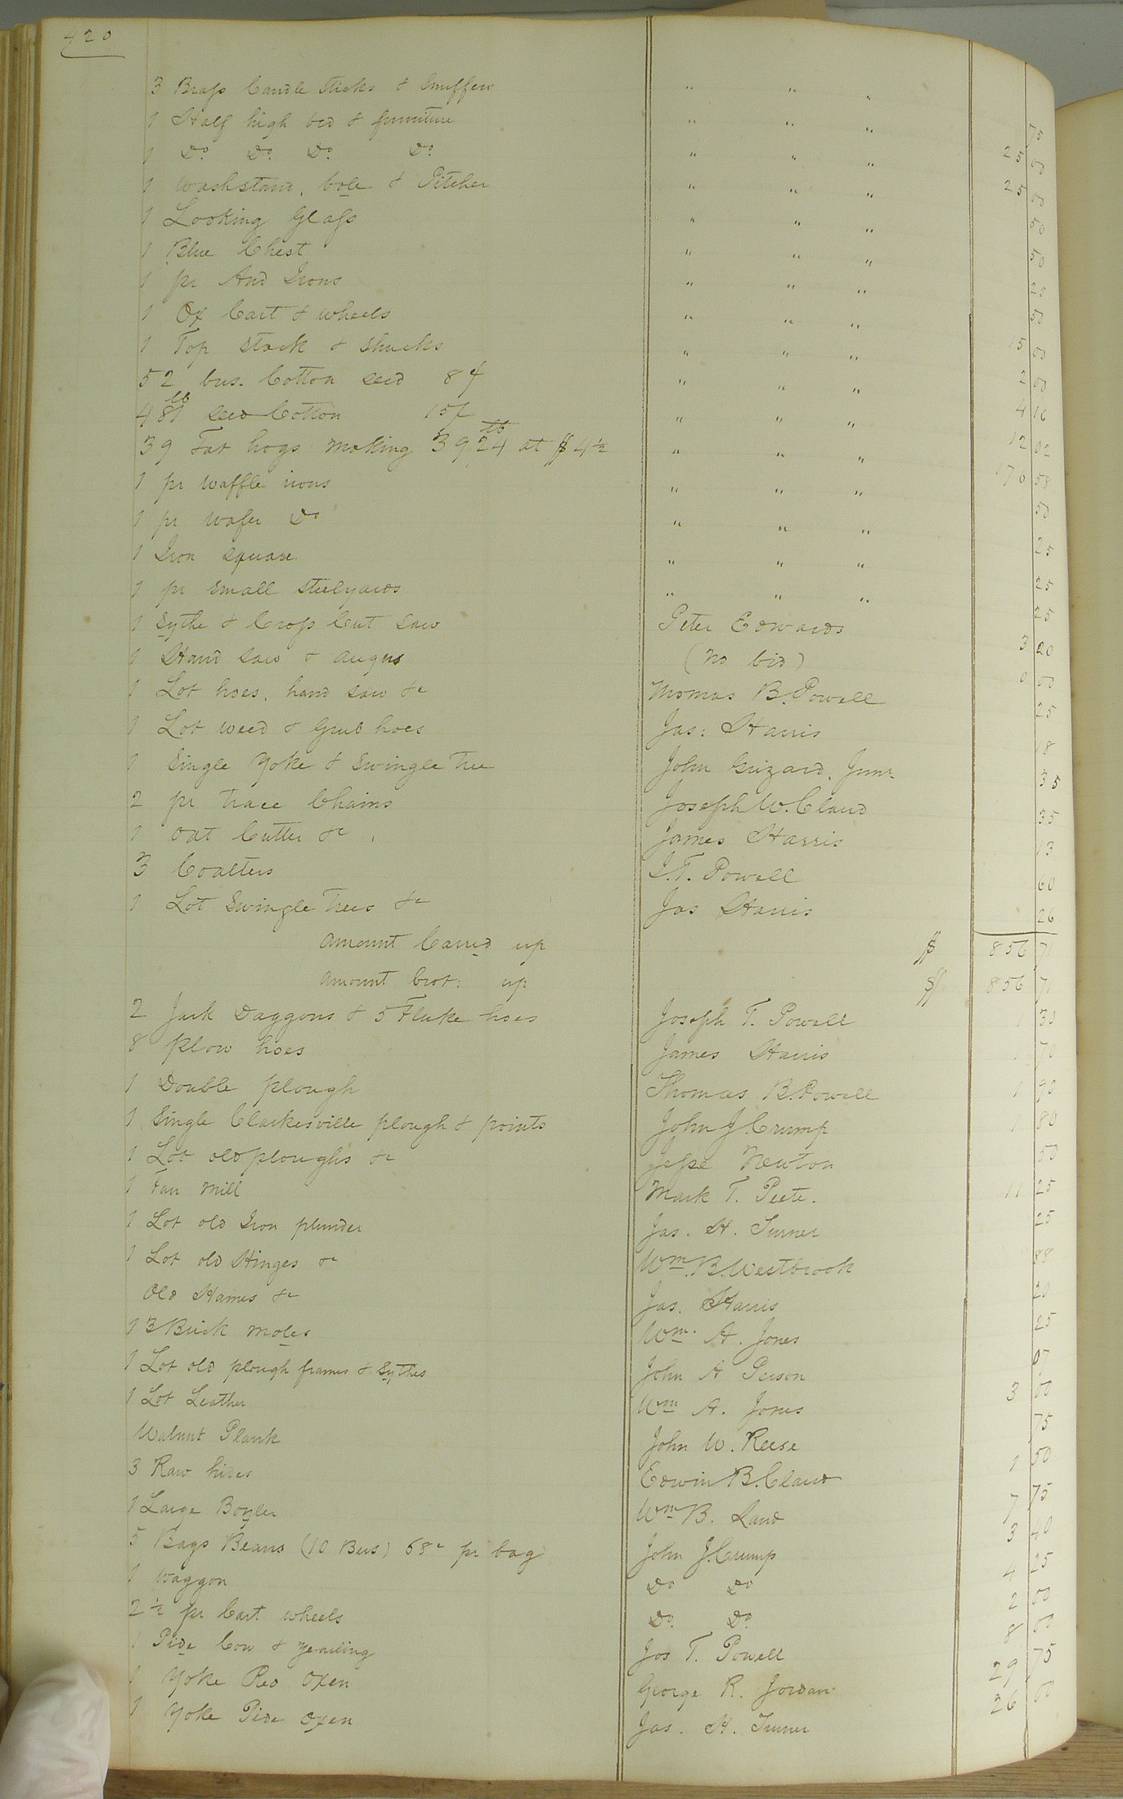 420
3 Brass Candle Sticks & Snuffers " " " 75
1 Half high bed & furniture " " " 25 00
1 Do Do Do Do " " " 25 00
1 Washstand, bole & Pitcher " " " 50
1 Looking Glass " " " 50
1 Blue Chest " " " 25
1 pr And Irons " " " 50
1 Ox Cart & wheels " " " 15 00
1 Top stack & shucks " " " 2 00
52 bus. Cotton seed 8¢ " " " 4 16
481 lb seed Cotton " " " 12 02
39 Fat hogs making 3924 lb at $4½ " " " 176 58
1 pr waffle irons " " " 50
1 pr wafer Do " " " 25
1 Iron square " " " 25
1 pr small steelyards " " " 25
1 Sythe & Cross Cut Saw Peter Edwards 3 20
1 Hand saw & augus (no bid) 0 00
1 Lot hoes, hand saw &c Thomas B. Powell 25
1 Lot weed & Grub hoes Jas: Harris 18
1 Single Yoke & Swingle Tree John Grizard, Junr. 35
2 pr Trace Chains Joseph W. Claud 35
1 Oat Cutter &c James Harris 13
3 Coalters J. T. Powell 60
1 Lot Swingle Trees &c Jas Harris 26
Amount Carried up $ 856 71
Amount brot: up $ 856 71
2 Jack Daggons & 5 Fluke hoes Joseph T. Powell 1 30
8 Plow hoes James Harris 1 70
1 Double plough Thomas B. Powell 1 90
1 Single Clarkesville plough & points John J. Crump 1 80
1 Lot old ploughs &c Jesse Newton 50
1 Fan Mill Mark T. Peete. 11 25
1 Lot old Iron plunder Jas. H. Turner 25
1 Lot old Hinges &c Wm. B. Westbrook 88
Old Hames &c Jas. Harris 20
1 3 Brick moles Wm. A. Jones 25
1 Lot old plough frames & Sythes John A Person 07
1 Lot Leather Wm A. Jones 3 00
Walnut Plank John W. Reese 75
3 Raw hides Edwin B. Claud 1 50
1 Large Boyler Wm B. Land 7 75
5 Bags Beans (10 Bus) 68c pr bag John J. Crump 3 40
1 Waggon Do Do 4 25
2 ½ pr Cart wheels Do Do 2 50
1 Pide Cow & yearling Jos T. Powell 8 00
1 Yoke Red Oxen George R. Jordan 29 75
1 Yoke Pide Oxen Jas. H. Turner 26 00